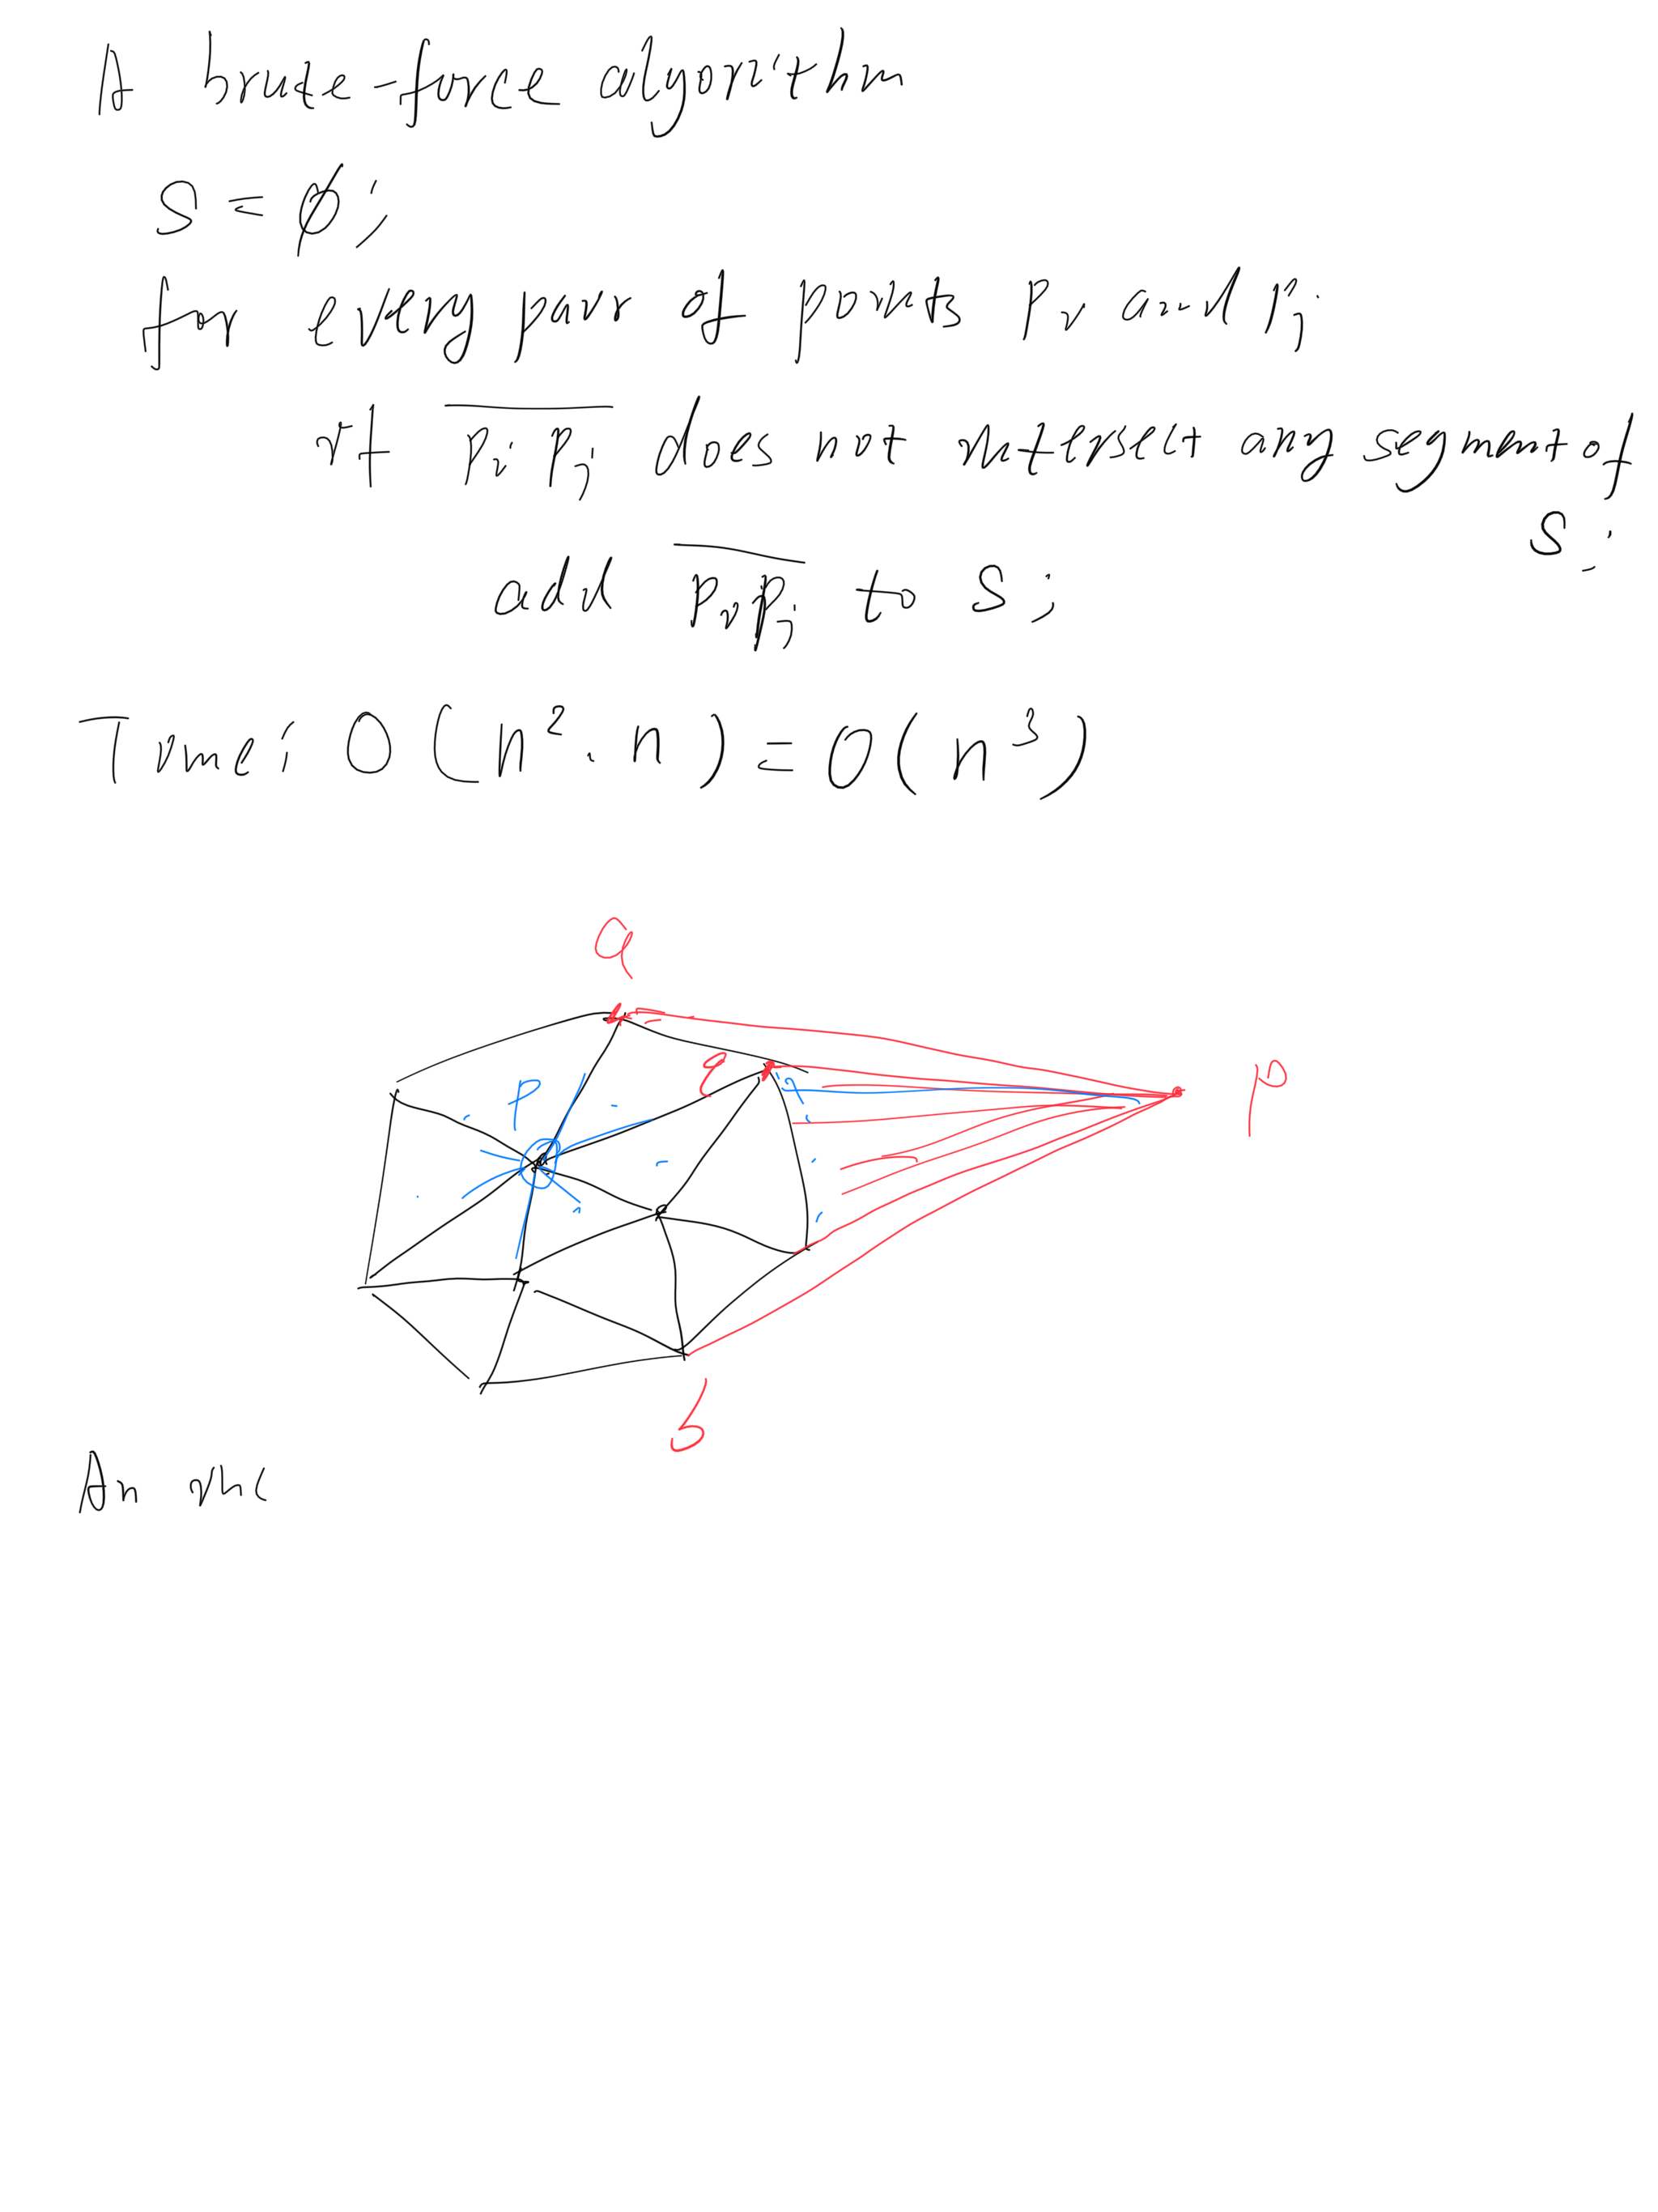 A brute-force algorithm
S = ∅;
for every pair of points Pi and Pj
if PiPj does not intersect any segment of
S;
add PiPj to S;
Time: O(n². n) = O(n³)
a
p
q
p
b
An inc